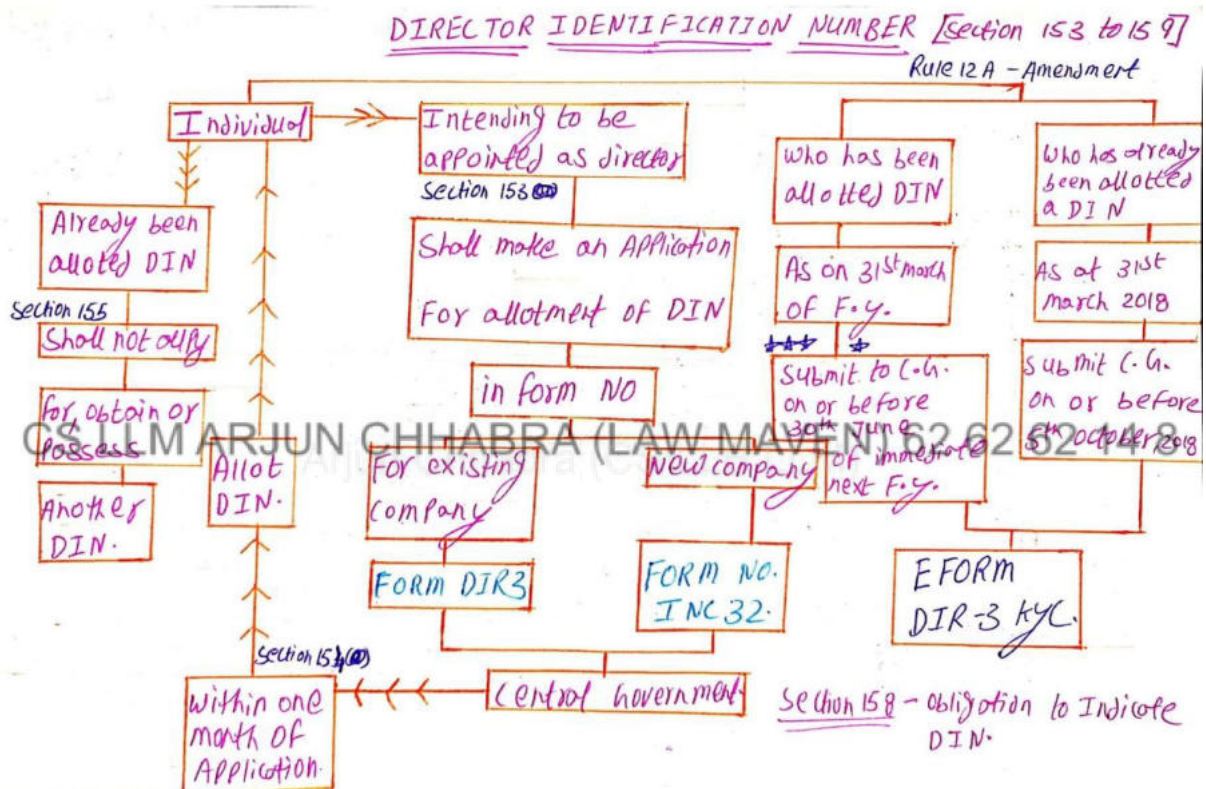 DIRECTOR IDENTIFICATION NUMBER [Section 153 to 159]
Rule 12A - Amendment
Individual
Intending to be
appointed as director
Section 153
Shall make an Application
For allotment of DIN
in form NO
For existing
company
FORM DIR3
New company
FORM NO.
INC 32.
Central Government
Section 154
Within one
month OF
Application.
Allot
DIN.
Already been
alloted DIN
Section 155
Shall not
For, obtain or
Possess
Another
DIN.
who has been
allotted DIN
As on 31st march
of F.y.
Submit to C.G.
on or before
30th June
of immediate
next F.y.
who has already
been allotted
a DIN
As at 31st
march 2018
submit C.G.
on or before
5th october 2018
EFORM
DIR-3 KYC.
Section 158 - obligation to Indicate
DIN.
CS LLM ARJUN CHHABRA (LAW MAVEN) 62 62 62 14 8